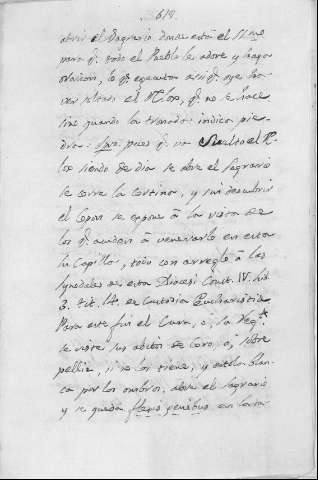 619.
abrir el Sagrario donde está el SSmo
para q. todo el Pueblo le adore y haga
oracion, lo q. executan assi q. oyen ha-
ver tocado el q. no se hace
sino quando la tronada indica pie-
dra: pues q. no el
siendo de dia se abre el sagrario
se corre la cortina, y sin descubrir
el Copon se expone à la vista de
los q. acudan à venerarlo en esta
su Capilla, todo con arreglo à las
synodales de esta Diocesi Const. IV. Lib.
3. tit. 14. de Custodia Eucharistiæ
Para este fin el Cura, o, su Reg.te
se viste sus abitos de Coro, o, sobre
pellis, si no los tiene, y estola blan-
ca por los ombros, abre el sagrario
y se queda flexis genibus en la ta-